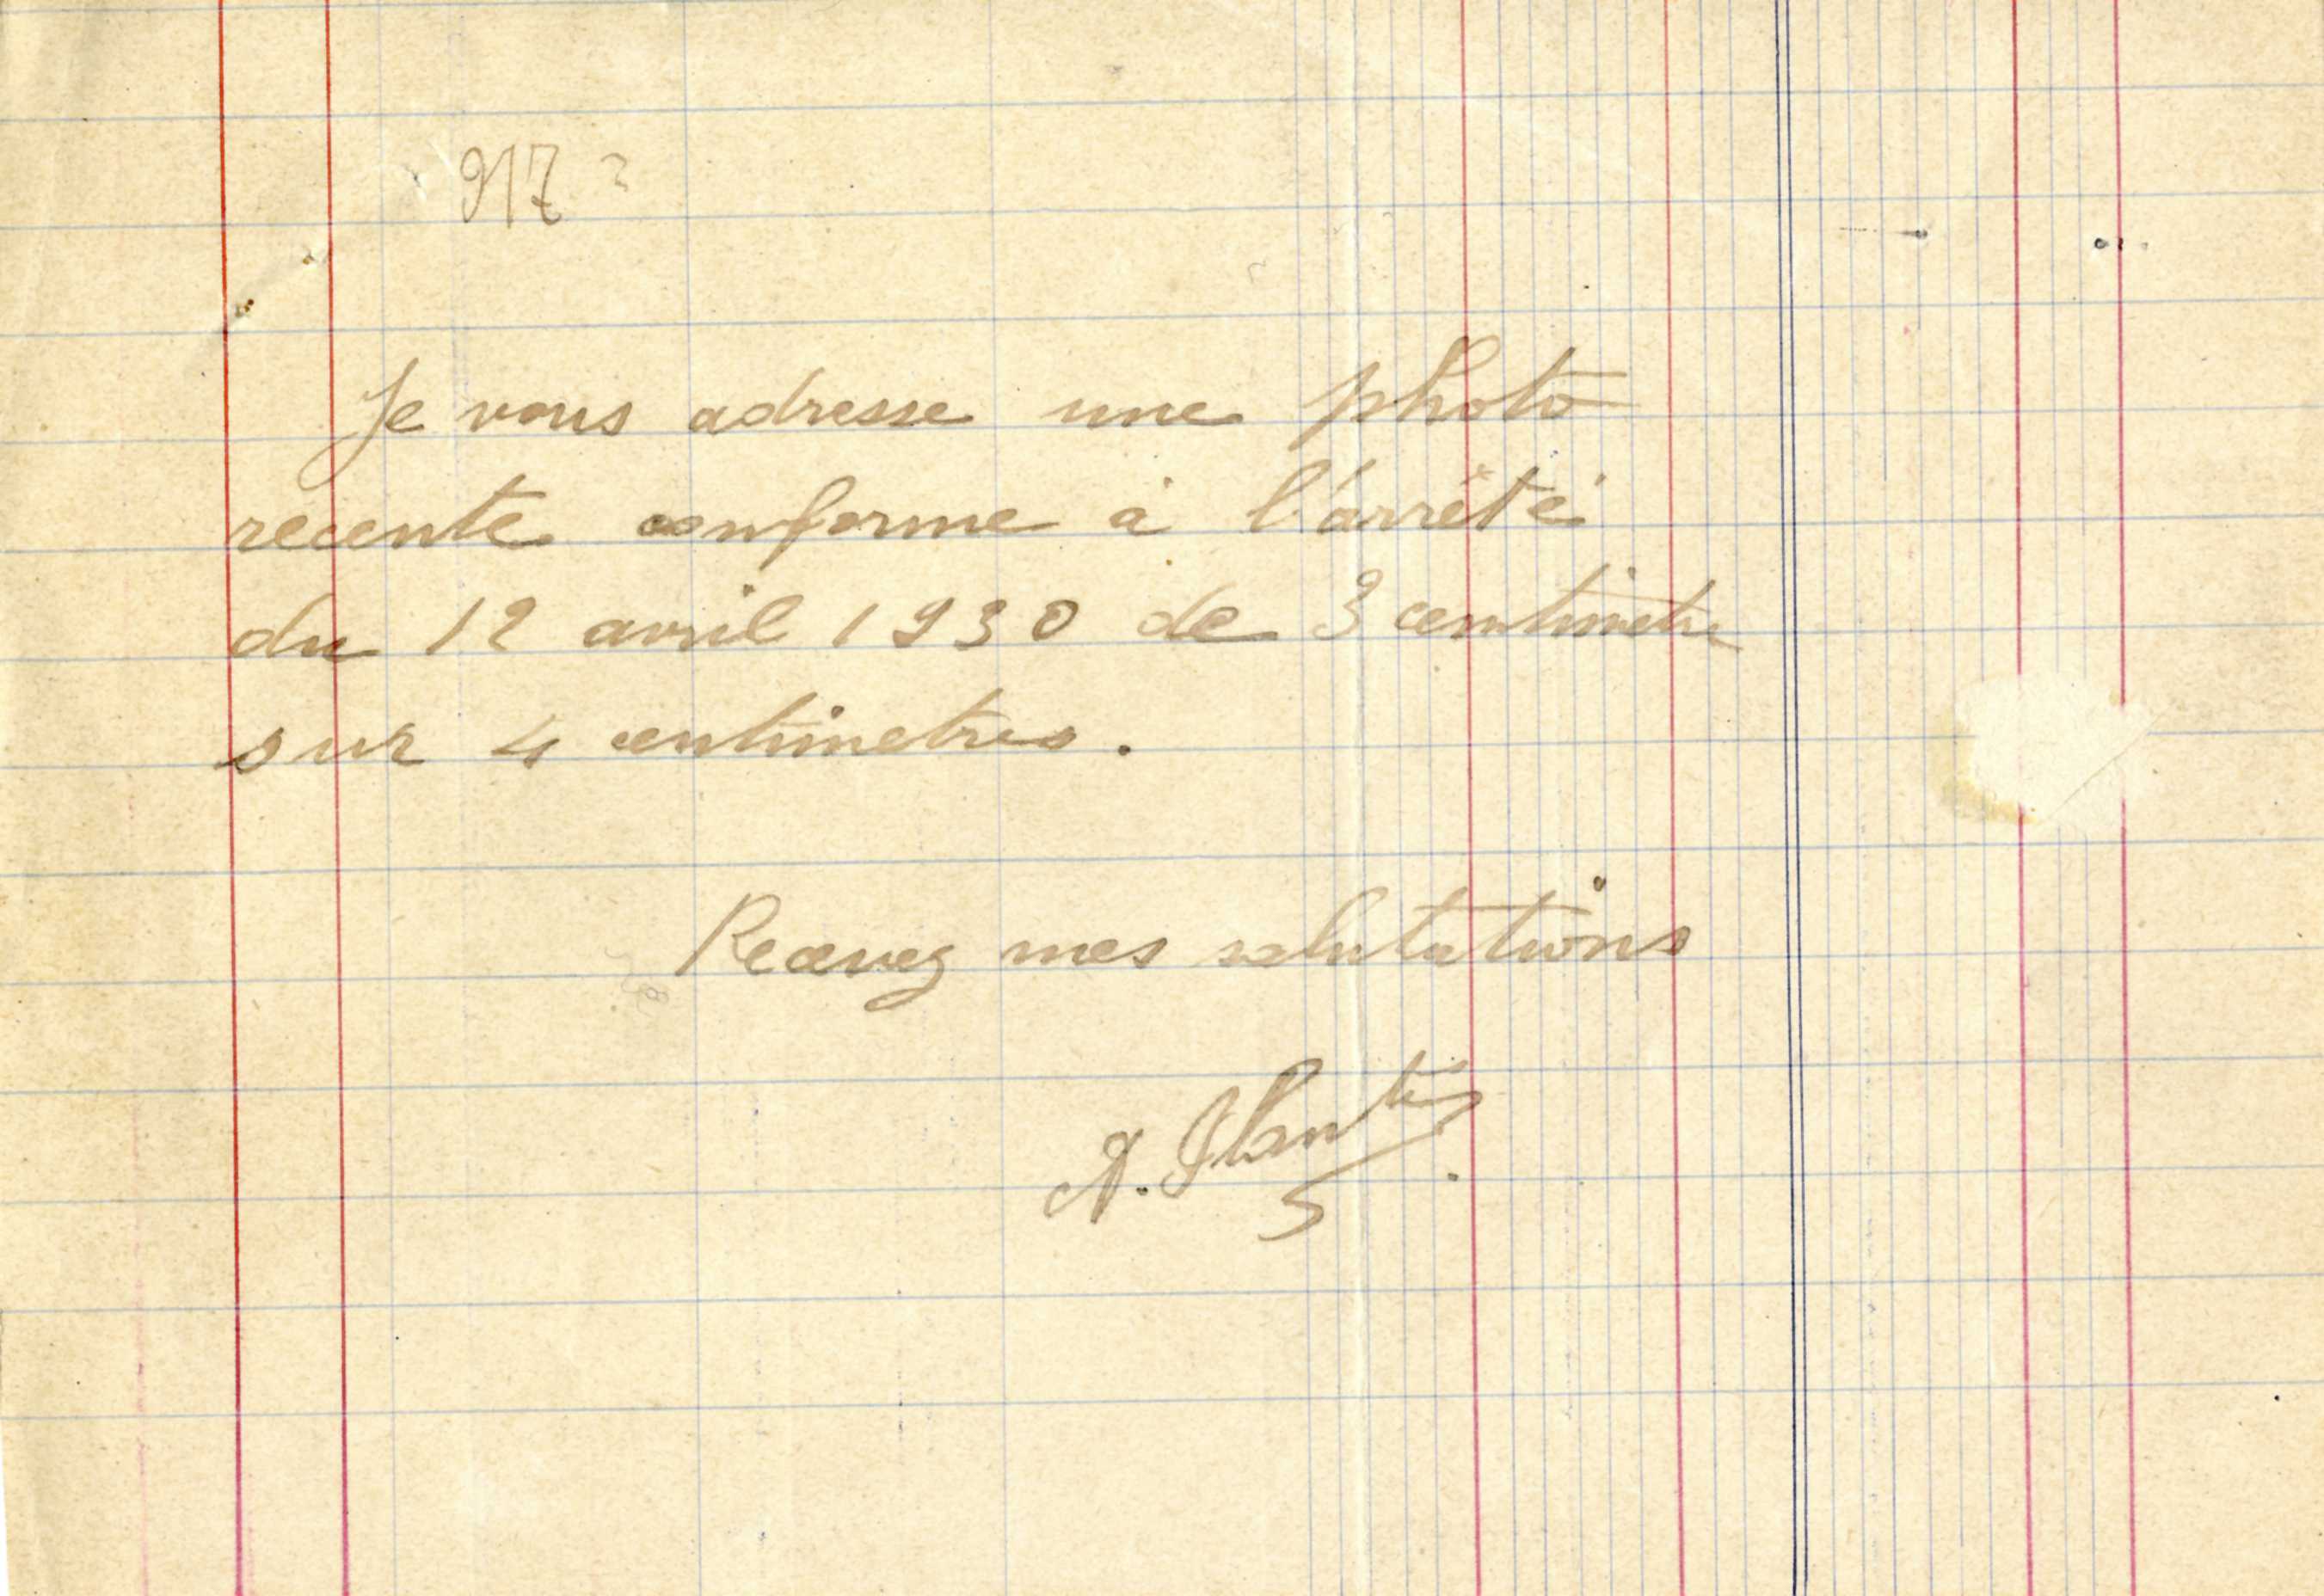 917
Je vous adresse une photo
recente conforme à l'arrêté
du 12 avril 1930 de 3 centimetre
sur 4 centimetres.
Recevez mes salutations
A.